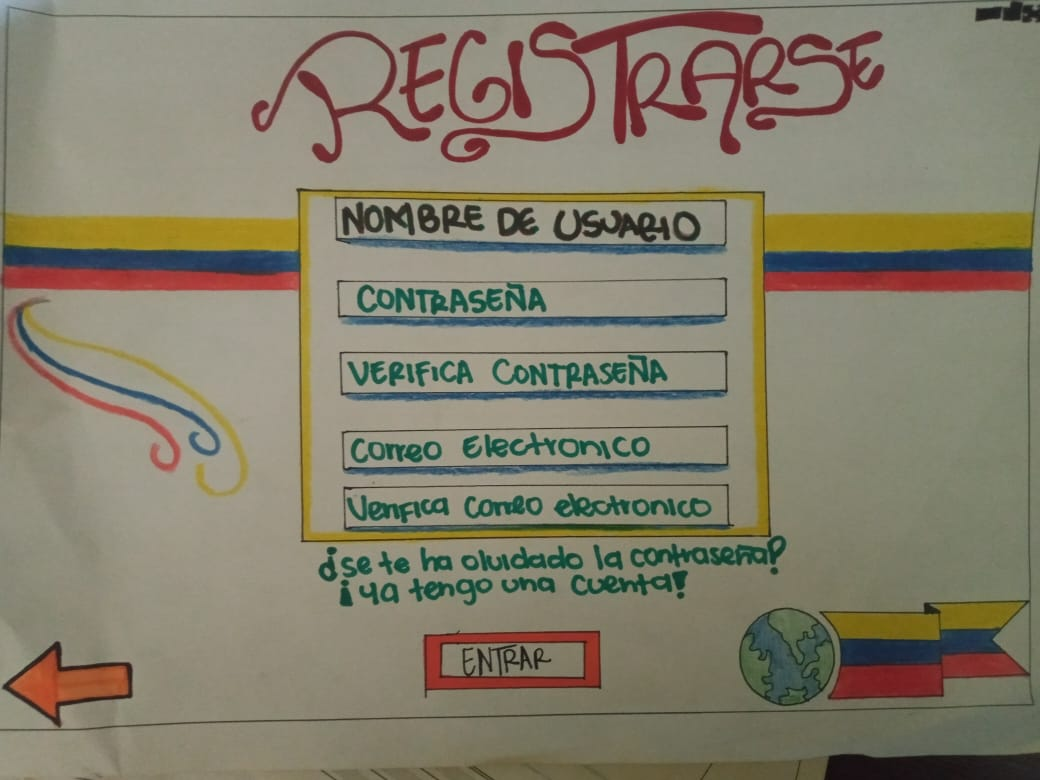 REGISTRARSE
NOMBRE DE USUARIO
CONTRASEÑA
VERIFICA CONTRASEÑA
Correo Electronico
Verifica correo electronico
¿se te ha olvidado la contraseña?
¡ya tengo una cuenta!
ENTRAR